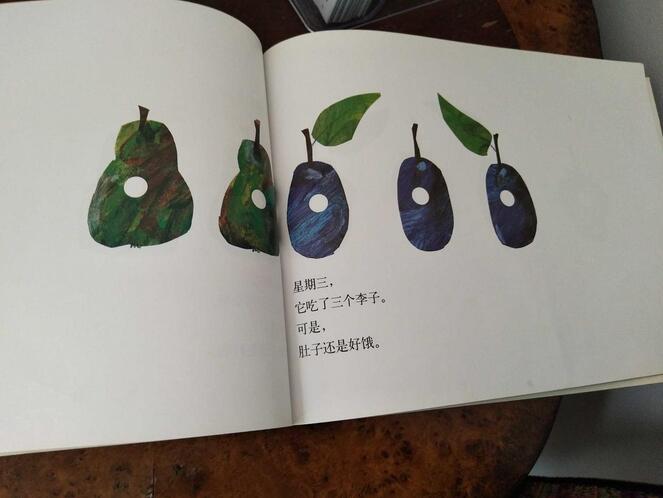 星期三，
它吃了三个李子。
可是，
肚子还是好饿。